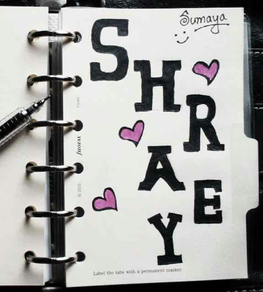 Sumaya
S
H
R
A
E
Y
Label the tabs with a permanent marker